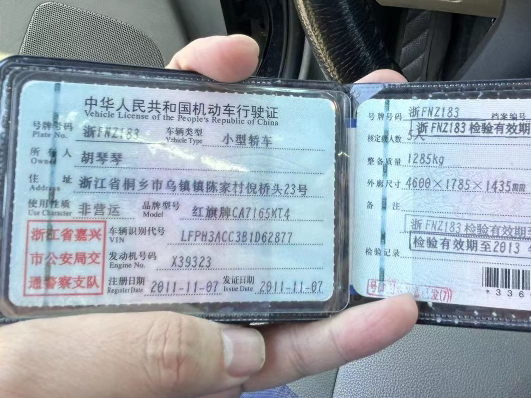 中华人民共和国机动车行驶证
Vehicle License of the People's Republic of China
号牌号码 浙FNZ183 车辆类型 小型轿车
Plate No. Vehicle Type
所有人 胡琴琴
Owner
住址 浙江省桐乡市乌镇镇陈家村倪桥头23号
Address
使用性质 非营运 品牌型号 红旗牌CA7165MT4
Use Character Model
浙江省嘉兴
市公安局交
通警察支队
车辆识别代号 LFPH3ACC3B1D62877
VIN
发动机号码 X39323
Engine No.
注册日期 2011-11-07 发证日期 2011-11-07
Register Date Issue Date
号牌号码 浙FNZ183 档案编号
浙FNZ183 检验有效期至
核定载人数 5人
整备质量 1285kg
外廓尺寸 4600×1785×1435
备注
浙FNZ183 检验有效期至
检验有效期至2013 4
检验记录